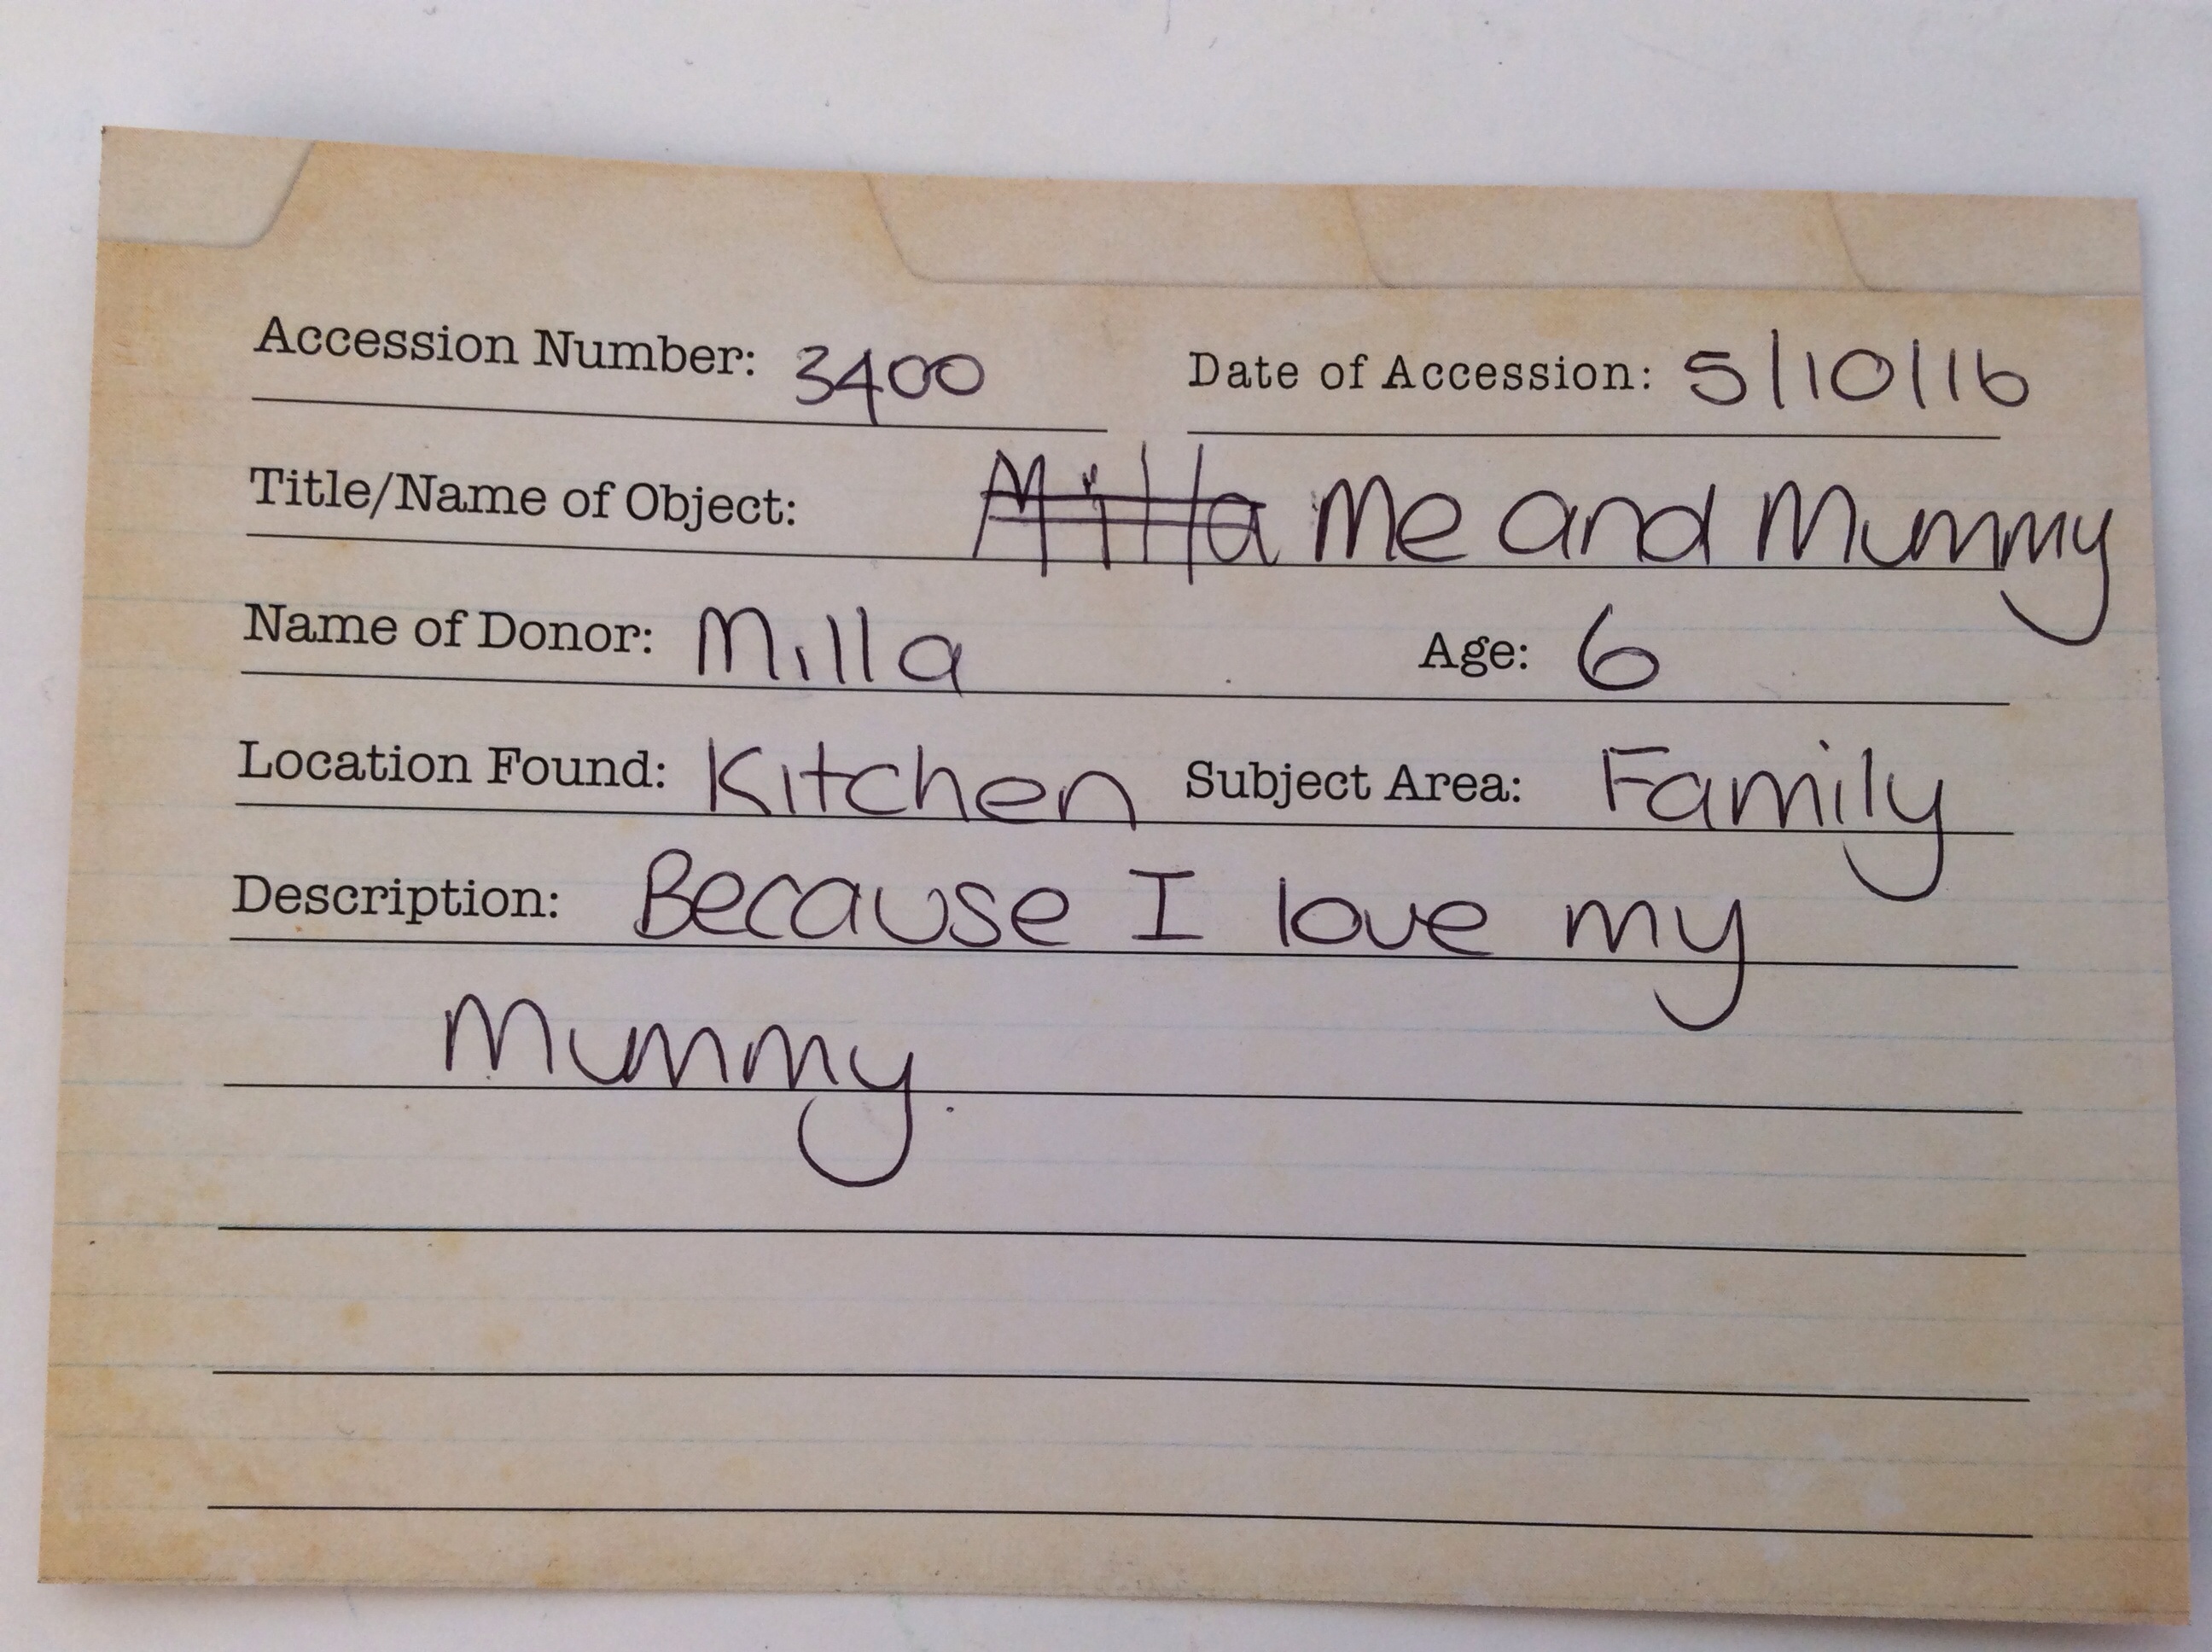 Accession Number: 3400 Date of Accession: 5/10/16
Title/Name of Object: Milla Me and Mummy
Name of Donor: Milla Age: 6
Location Found: Kitchen Subject Area: Family
Description: Because I love my
Mummy.